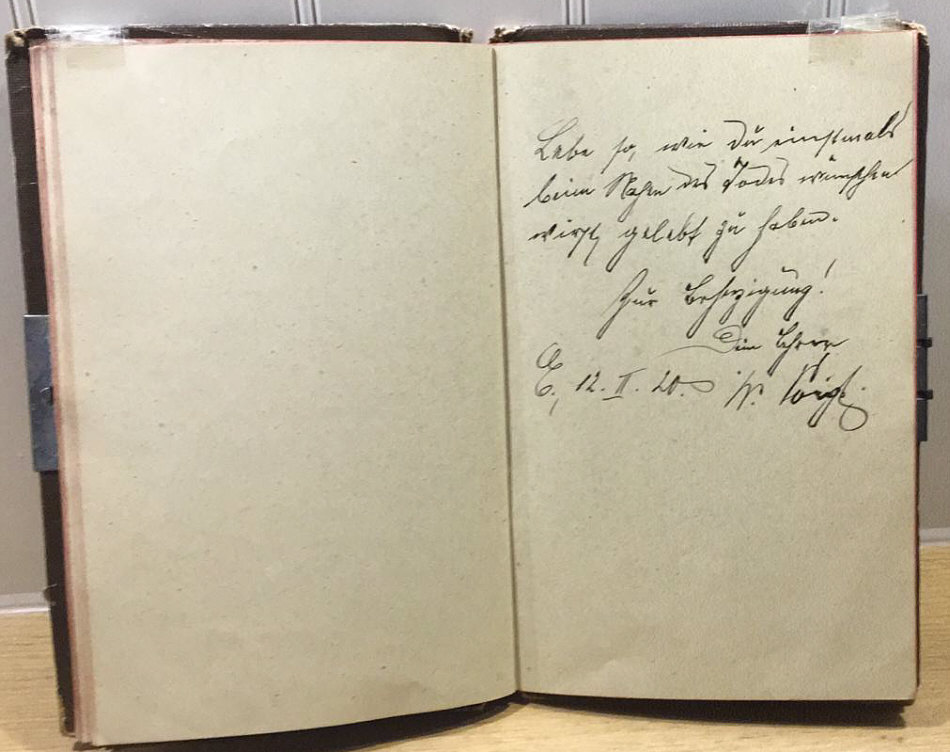 Lebe so, wie Du einstmals
beim Nahen des Todes wünschen
wirst, gelebt zu haben.
Zur Beherzigung!
Dein Lehrer
E., 12. II. 20. W. Voigt.